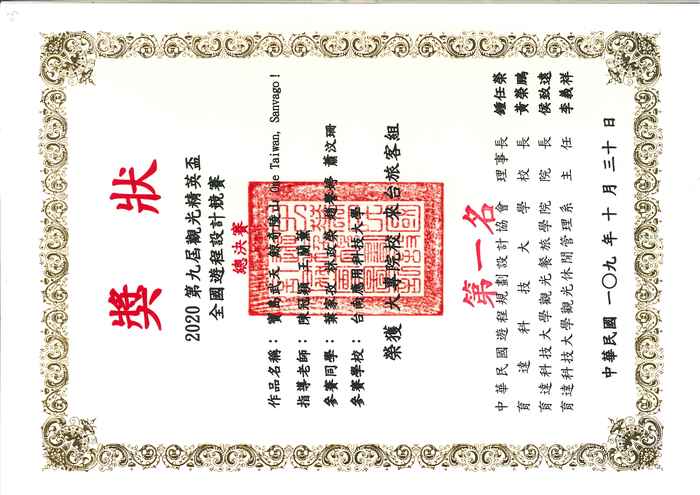 獎狀
2020 第九屆觀光精英盃
全國遊程設計競賽
總決賽
作品名稱：寶島武天 縱奇陵山 One Taiwan, Sanvago！
指導老師：陳冠穎 王蘭薰
參賽同學：葉家孜 林政榮 趙 婷 蕭汶珊
參賽學校：台南應用科技大學
榮獲 大專院校 來台旅客組
第一名
中華民國遊程規劃設計協會 理事長 鍾任榮
育達科技大學 校長 黃榮鵬
育達科技大學觀光餐旅學院 院長 侯致遠
育達科技大學觀光休閒管理系 主任 李義祥
中華民國一〇九年十月三十日